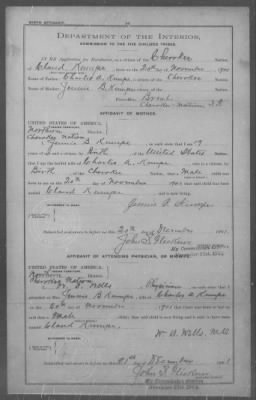 BIRTH AFFIDAVIT.
DEPARTMENT OF THE INTERIOR,
COMMISSION TO THE FIVE CIVILIZED TRIBES.
IN RE Application for Enrollment, as a citizen of Cherokee Nation,
of Claud Kumpe, born on the 20th day of November, 1901
Name of Father: Charles A. Kumpe a citizen of the Cherokee Nation.
Name of Mother: Jennie B. Kumpe a citizen of the Nation.
Cherokee Nation I.T.
AFFIDAVIT OF MOTHER.
UNITED STATES OF AMERICA,
INDIAN TERRITORY,
Northern District.
Cherokee Nation
I, Jennie B. Kumpe, on oath state that I am 19
years of age and a citizen, by Birth, of the United States
that I am the lawful wife of Charles A. Kumpe, who is a citizen, by
Birth, of the Cherokee Nation; that a Male child was
born to me on 20th day of November, 1901, that said child has been
named Claud Kumpe, and is now living.
Jennie B. Kumpe
WITNESSES TO MARK:
Subscribed and sworn to before me this 20th day of December, 1901.
AFFIDAVIT OF ATTENDING PHYSICIAN, OR MIDWIFE.
UNITED STATES OF AMERICA,
INDIAN TERRITORY,
Northern District.
Cherokee Nation
Physician, on oath state that I
attended on Mrs. Jennie B. Kumpe, wife of Charles A. Kumpe
on the 20th day of November, 1901, that there was born to her on said date a
Male child; that said child is now living and is said to have been
named Claud Kumpe.
M.D.
WITNESSES TO MARK:
Subscribed and sworn to before me this 21st day of December, 1901.